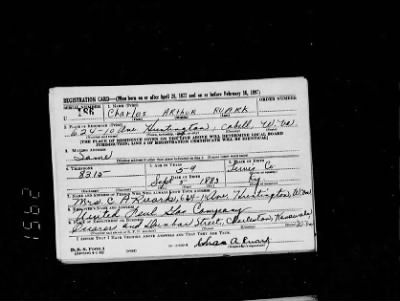 REGISTRATION CARD—(Men born on or after April 28, 1877 and on or before February 16, 1897)
SERIAL NUMBER 1. NAME (Print) ORDER NUMBER
Charles Arthur Ruark
2. PLACE OF RESIDENCE (Print)
624-10 Ave Huntington, Cabell W.Va
[THE PLACE OF RESIDENCE GIVEN ON THE LINE ABOVE WILL DETERMINE LOCAL BOARD
JURISDICTION; LINE 2 OF REGISTRATION CERTIFICATE WILL BE IDENTICAL]
3. MAILING ADDRESS
Same
4. TELEPHONE 5. AGE IN YEARS 6. PLACE OF BIRTH
8315 59
Sept 5 1883
7. NAME AND ADDRESS OF PERSON WHO WILL ALWAYS KNOW YOUR ADDRESS
Mrs C A Ruark, 624-10 Ave Huntington, W.Va
8. EMPLOYER'S NAME AND ADDRESS
United Fuel Gas Company
and Dunbar Street, Charleston, Kanawha
W.Va
I AFFIRM THAT I HAVE VERIFIED ABOVE ANSWERS AND THAT THEY ARE TRUE.
D. S. S. Form 1
Chas A Ruark
1562